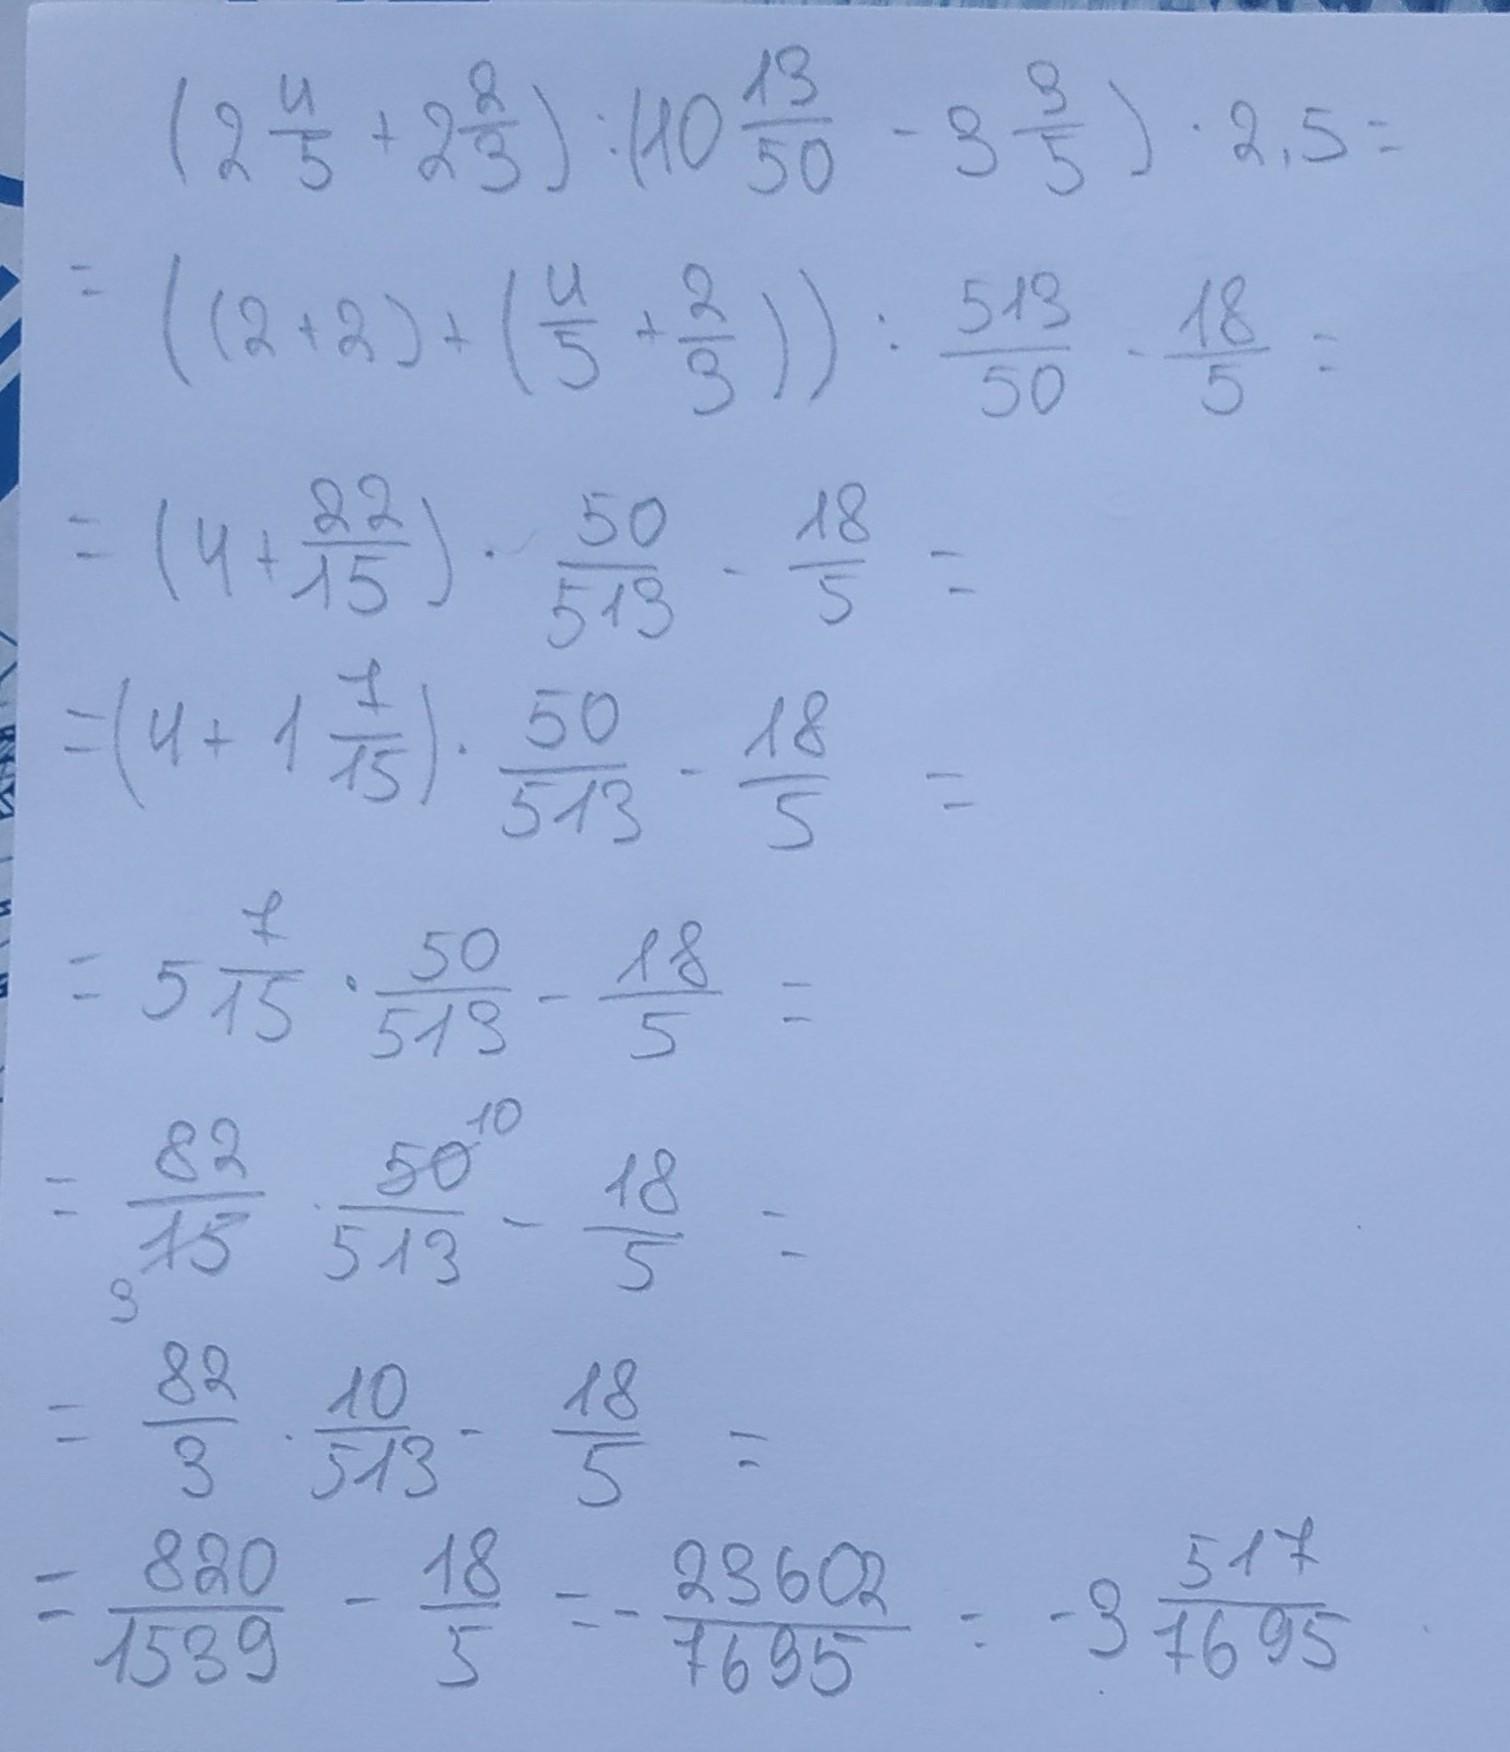 (2 4/5 + 2 2/3) : (10 13/50 - 3 3/5) · 2,5 =
= ((2+2) + (4/5 + 2/3)) : 513/50 - 18/5 =
= (4 + 22/15) · 50/513 - 18/5 =
= (4 + 1 7/15) · 50/513 - 18/5 =
= 5 7/15 · 50/513 - 18/5 =
= 82/15 3 · 50/513 10 - 18/5 =
= 82/3 · 10/513 - 18/5 =
= 820/1539 - 18/5 = - 23602/7695 = -3 517/7695